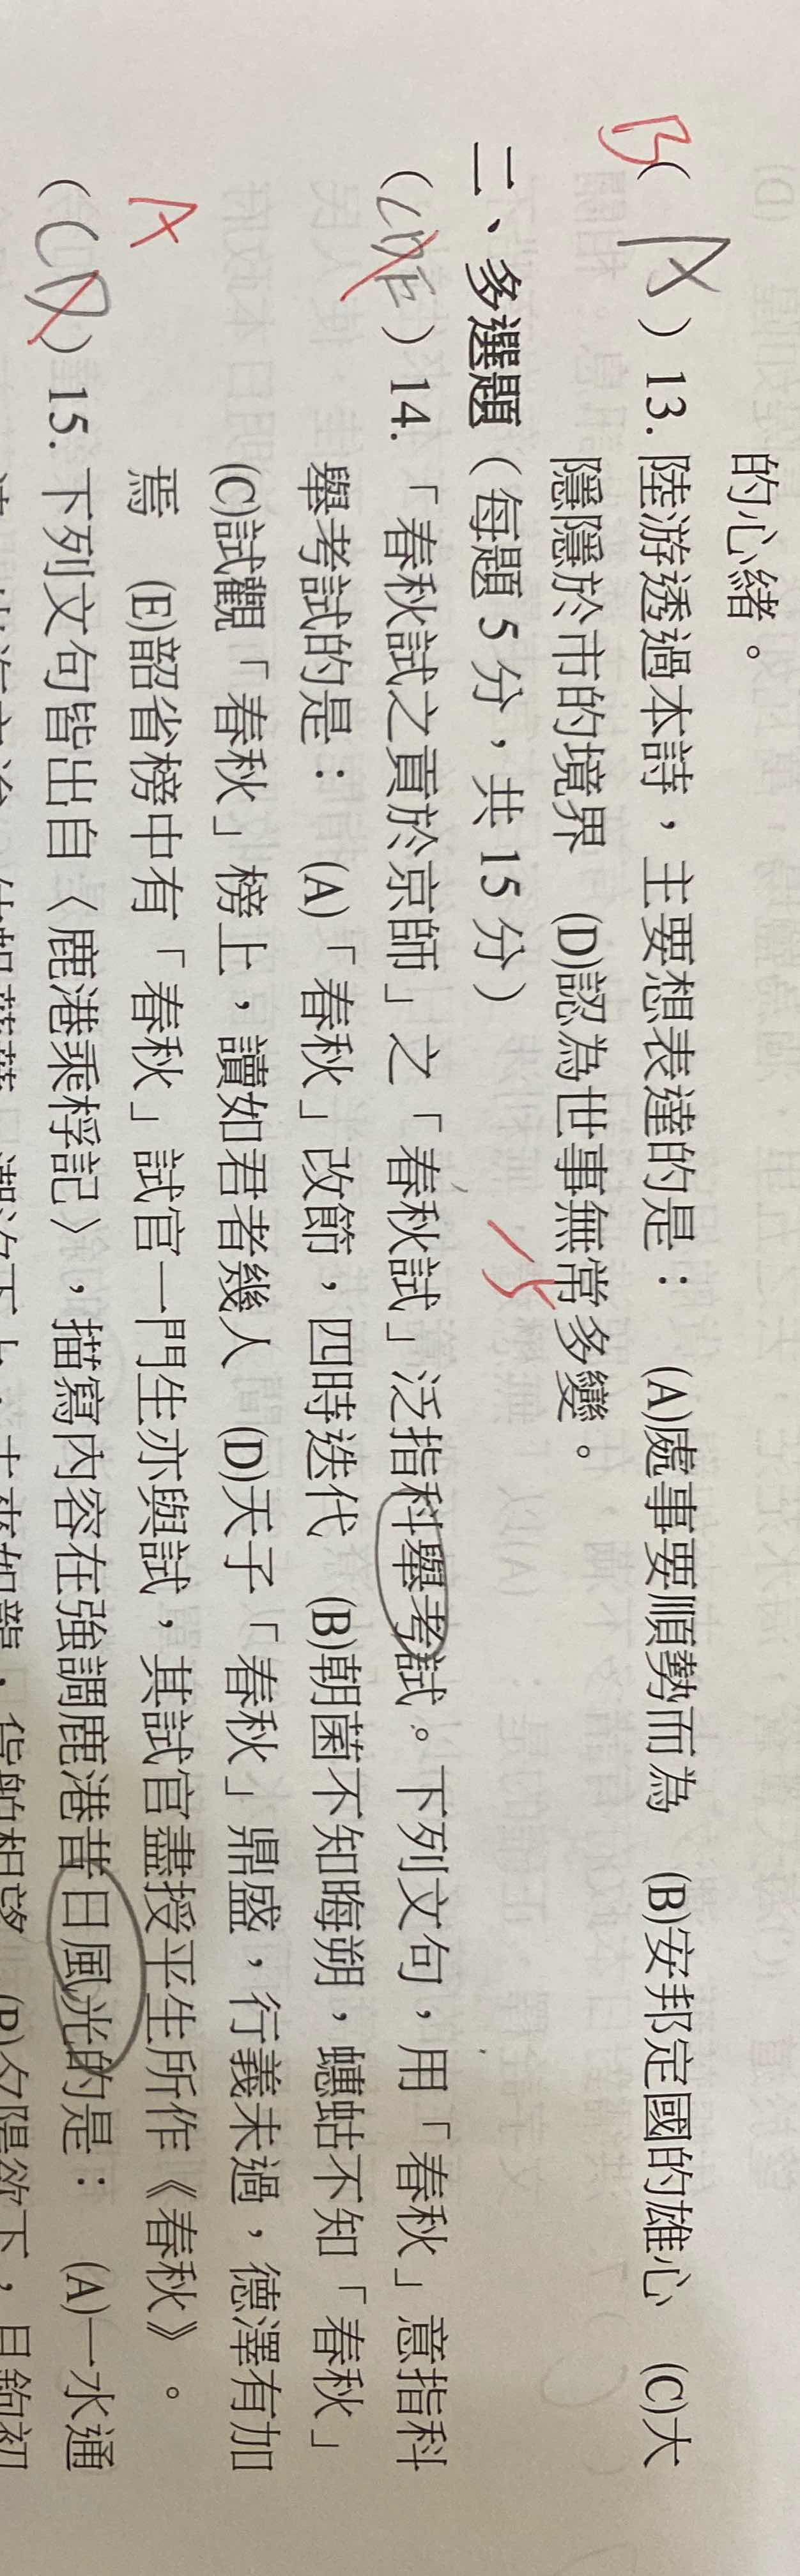 的心緒。
B
( A ) 13. 陸游透過本詩，主要想表達的是： (A)處事要順勢而為 (B)安邦定國的雄心 (C)大
隱隱於市的境界 (D)認為世事無常多變。
二、多選題（每題 5 分，共 15 分）
( CDE ) 14. 「春秋試之貢於京師」之「春秋試」泛指科舉考試。下列文句，用「春秋」意指科
舉考試的是： (A)「春秋」改節，四時迭代 (B)朝菌不知晦朔，蟪蛄不知「春秋」
(C)試觀「春秋」榜上，讀如君者幾人 (D)天子「春秋」鼎盛，行義未過，德澤有加
焉 (E)韶省榜中有「春秋」試官一門生亦與試，其試官盡授平生所作《春秋》。
A
( CD ) 15. 下列文句皆出自〈鹿港乘桴記〉，描寫內容在強調鹿港昔日風光的是： (A)一水通
貨舶相望 (B)夕陽欲下，月鉤初